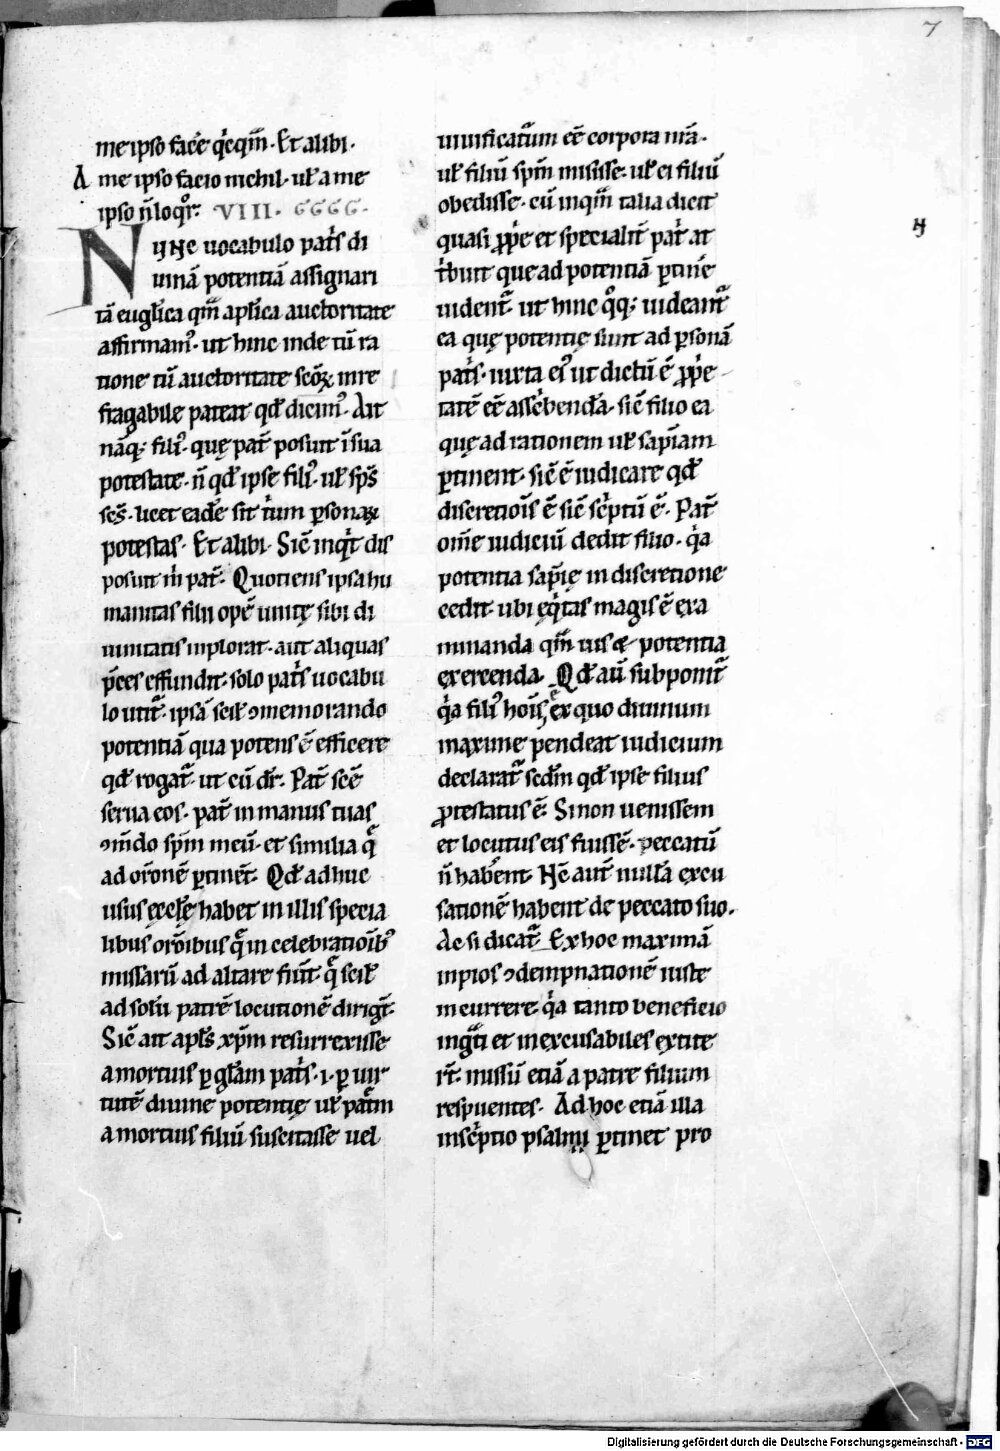 7
me ipso facẻ qͥcqͣm̄. Et alibi.
A me ipso facio nichil. uł a me
ipso n̄ loqͦr. VIII. GGGG.
NUNC uocabulo patͥs di
uinā potentiā assignari
tā euglͥica qͣm̄ aplͥica auctoritate
affirmamꝰ. ut hinc inde tū ra
tione tū auctoritate scōꝝ inre
fragabile pateat qd̄ dicimꝰ. Ait
nāqꝫ filiꝰ. quę pat̄ posuit ī sua
potestate. n̄ qd̄ ipse filiꝰ. uł sp̄s
sc̄s. licet eadē sit trium ꝑsonaꝝ
potestas. Et alibi. Sic̄ inqͥt dis
posuit m̄ pat̄. Quotiens ipsa hu
manitas filii opē unitę sibi di
uinitatis inplorat. aut aliquas
p̄ces effundit. solo patͥs uocabu
lo utit᷑. ipsā scil̄ ꝯmemorando
potentiā qua potens ē efficere
qd̄ rogat᷑. ut cū dr̄. Pat̄ sc̄e
serua eos. pat̄ in manus tuas
ꝯm̄do sp̄m meū. et similia qͣ
ad or̄onē ꝑtinēt. Qd̄ adhuc
usus ęccłę habet in illis specia
libus or̄onibus qͣ in celebratioībꝰ
missarū ad altare fiūt. qͣ scil̄
ad solū patrē locutionē dirigūt.
Sic̄ ait apl̄s xp̄m resurrexisse
a mortuis ꝑ gl̄am patͥs. i. ꝑ uir
tutē diuine potentię uł patͣm
a mortuis filiū suscitasse uel
uiuificatūm eē corpora nr̄a.
uł filiū sp̄m misisse. uł ei filiū
obedisse. cū inqͣm̄ talia dicit
quasi ꝓpͥe et specialit̄ patͥ at
tͥbuit que ad potentiā ꝑtinē
uident᷑. ut hinc qͦqꝫ uideant᷑
ea quę potentię sunt ad ꝑsonā
patͥs. iuxta eiꝰ ut dictū ē ꝓpͥe
tatē eē asscͥbenda. sic̄ filio ea
quę ad rationem uł sapīam
ꝑtinent. sic̄ ē iudicare qd̄
discretiōis ē sic̄ scͥptū ē. Pat̄
om̄e iudiciū dedit filio. qͥa
potentia sapīę in discretione
cedit. ubi eqͥtas magis ē exa
minanda qͣm̄ uis & potentia
exercenda. Qd̄ aū subponit᷑
qͥa filiꝰ hoīs ē ex quo diuinum
maxime pendeat iudicium
declarat᷑ scd̄m qd̄ ipse filius
ꝓtestatus ē. Si non uenissem
et locutus eis fuissē. peccatū
n̄ haberent. Nc̄ aut̄ nullā excu
sationē habent de peccato suo.
Ac si dicat᷑. Ex hoc maximā
inpios ꝯdempnationē iuste
incurrere. qͥa tanto beneficio
ingͣti et inexcusabiles extite
rt̄. missū etiā a patre filium
respuentes. Ad hoc etiā illa
inscͥptio psalmi ꝑtinet pro
N
Digitalisierung gefördert durch die Deutsche Forschungsgemeinschaft - DFG